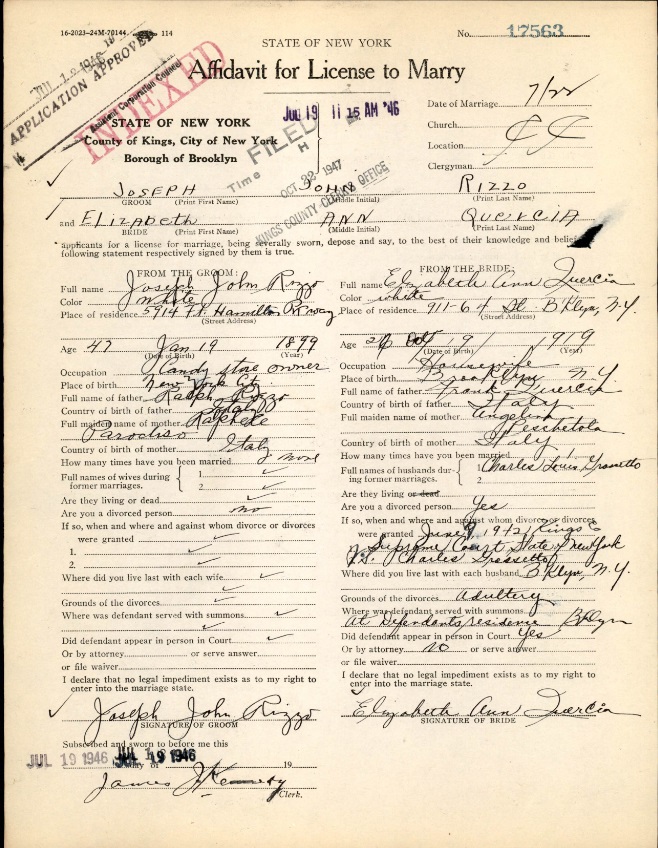 16-2023-24M-70144 114
No. 17563
STATE OF NEW YORK
Affidavit for License to Marry
APPLICATION APPROVED
Assistant Corporation Counsel
INDEXED
JUL 19 11 15 AM '46
FILED
Time H
OCT 22 1947
KINGS COUNTY CLERK'S OFFICE
STATE OF NEW YORK
County of Kings, City of New York
Borough of Brooklyn
Date of Marriage 7/22
Church
Location
Clergyman
JOSEPH JOHN RIZZO
GROOM (Print First Name) (Middle Initial) (Print Last Name)
and ELIZABETH ANN QUERCIA
BRIDE (Print First Name) (Middle Initial) (Print Last Name)
applicants for a license for marriage, being severally sworn, depose and say, to the best of their knowledge and belief
following statement respectively signed by them is true.
FROM THE GROOM:
Full name Joseph John Rizzo
Color White
Place of residence 5914 Ft. Hamilton Pkway
(Street Address)
Age 47 Jan 19 1899
(Date of Birth) (Year)
Occupation Candy store owner
Place of birth New York City
Full name of father Ralph Rizzo
Country of birth of father Italy
Full maiden name of mother Raphele
Paradiso
Country of birth of mother Italy
How many times have you been married none
Full names of wives during former marriages. 1.
2.
Are they living or dead
Are you a divorced person no
If so, when and where and against whom divorce or divorces
were granted
1.
2.
Where did you live last with each wife
Grounds of the divorces
Where was defendant served with summons
Did defendant appear in person in Court
Or by attorney or serve answer
or file waiver
I declare that no legal impediment exists as to my right to
enter into the marriage state.
Joseph John Rizzo
SIGNATURE OF GROOM
Subscribed and sworn to before me this
JUL 19 1946 JUL 19 1946
day of 19
James J Kennedy
Clerk.
FROM THE BRIDE:
Full name Elizabeth Ann Quercia
Color white
Place of residence 911-64 St. B'Klyn, N.Y.
(Street Address)
Age 26 Oct 19 1919
(Date of Birth) (Year)
Occupation Housewife
Place of birth Brooklyn N.Y.
Full name of father Frank Quercia
Country of birth of father Italy
Full maiden name of mother Angelina
Peschetola
Country of birth of mother Italy
How many times have you been married 1
Full names of husbands during former marriages. 1. Charles Louis
2.
Are they living or dead
Are you a divorced person Yes
If so, when and where and against whom divorce or divorces
were granted June 9, 1942, Kings Co
Supreme Court State of New York
Charles
Where did you live last with each husband B'Klyn, N.Y.
Grounds of the divorces adultery
Where was defendant served with summons
At Defendants residence Bklyn
Did defendant appear in person in Court Yes
Or by attorney NO or serve answer
or file waiver
I declare that no legal impediment exists as to my right to
enter into the marriage state.
Elizabeth Ann Quercia
SIGNATURE OF BRIDE